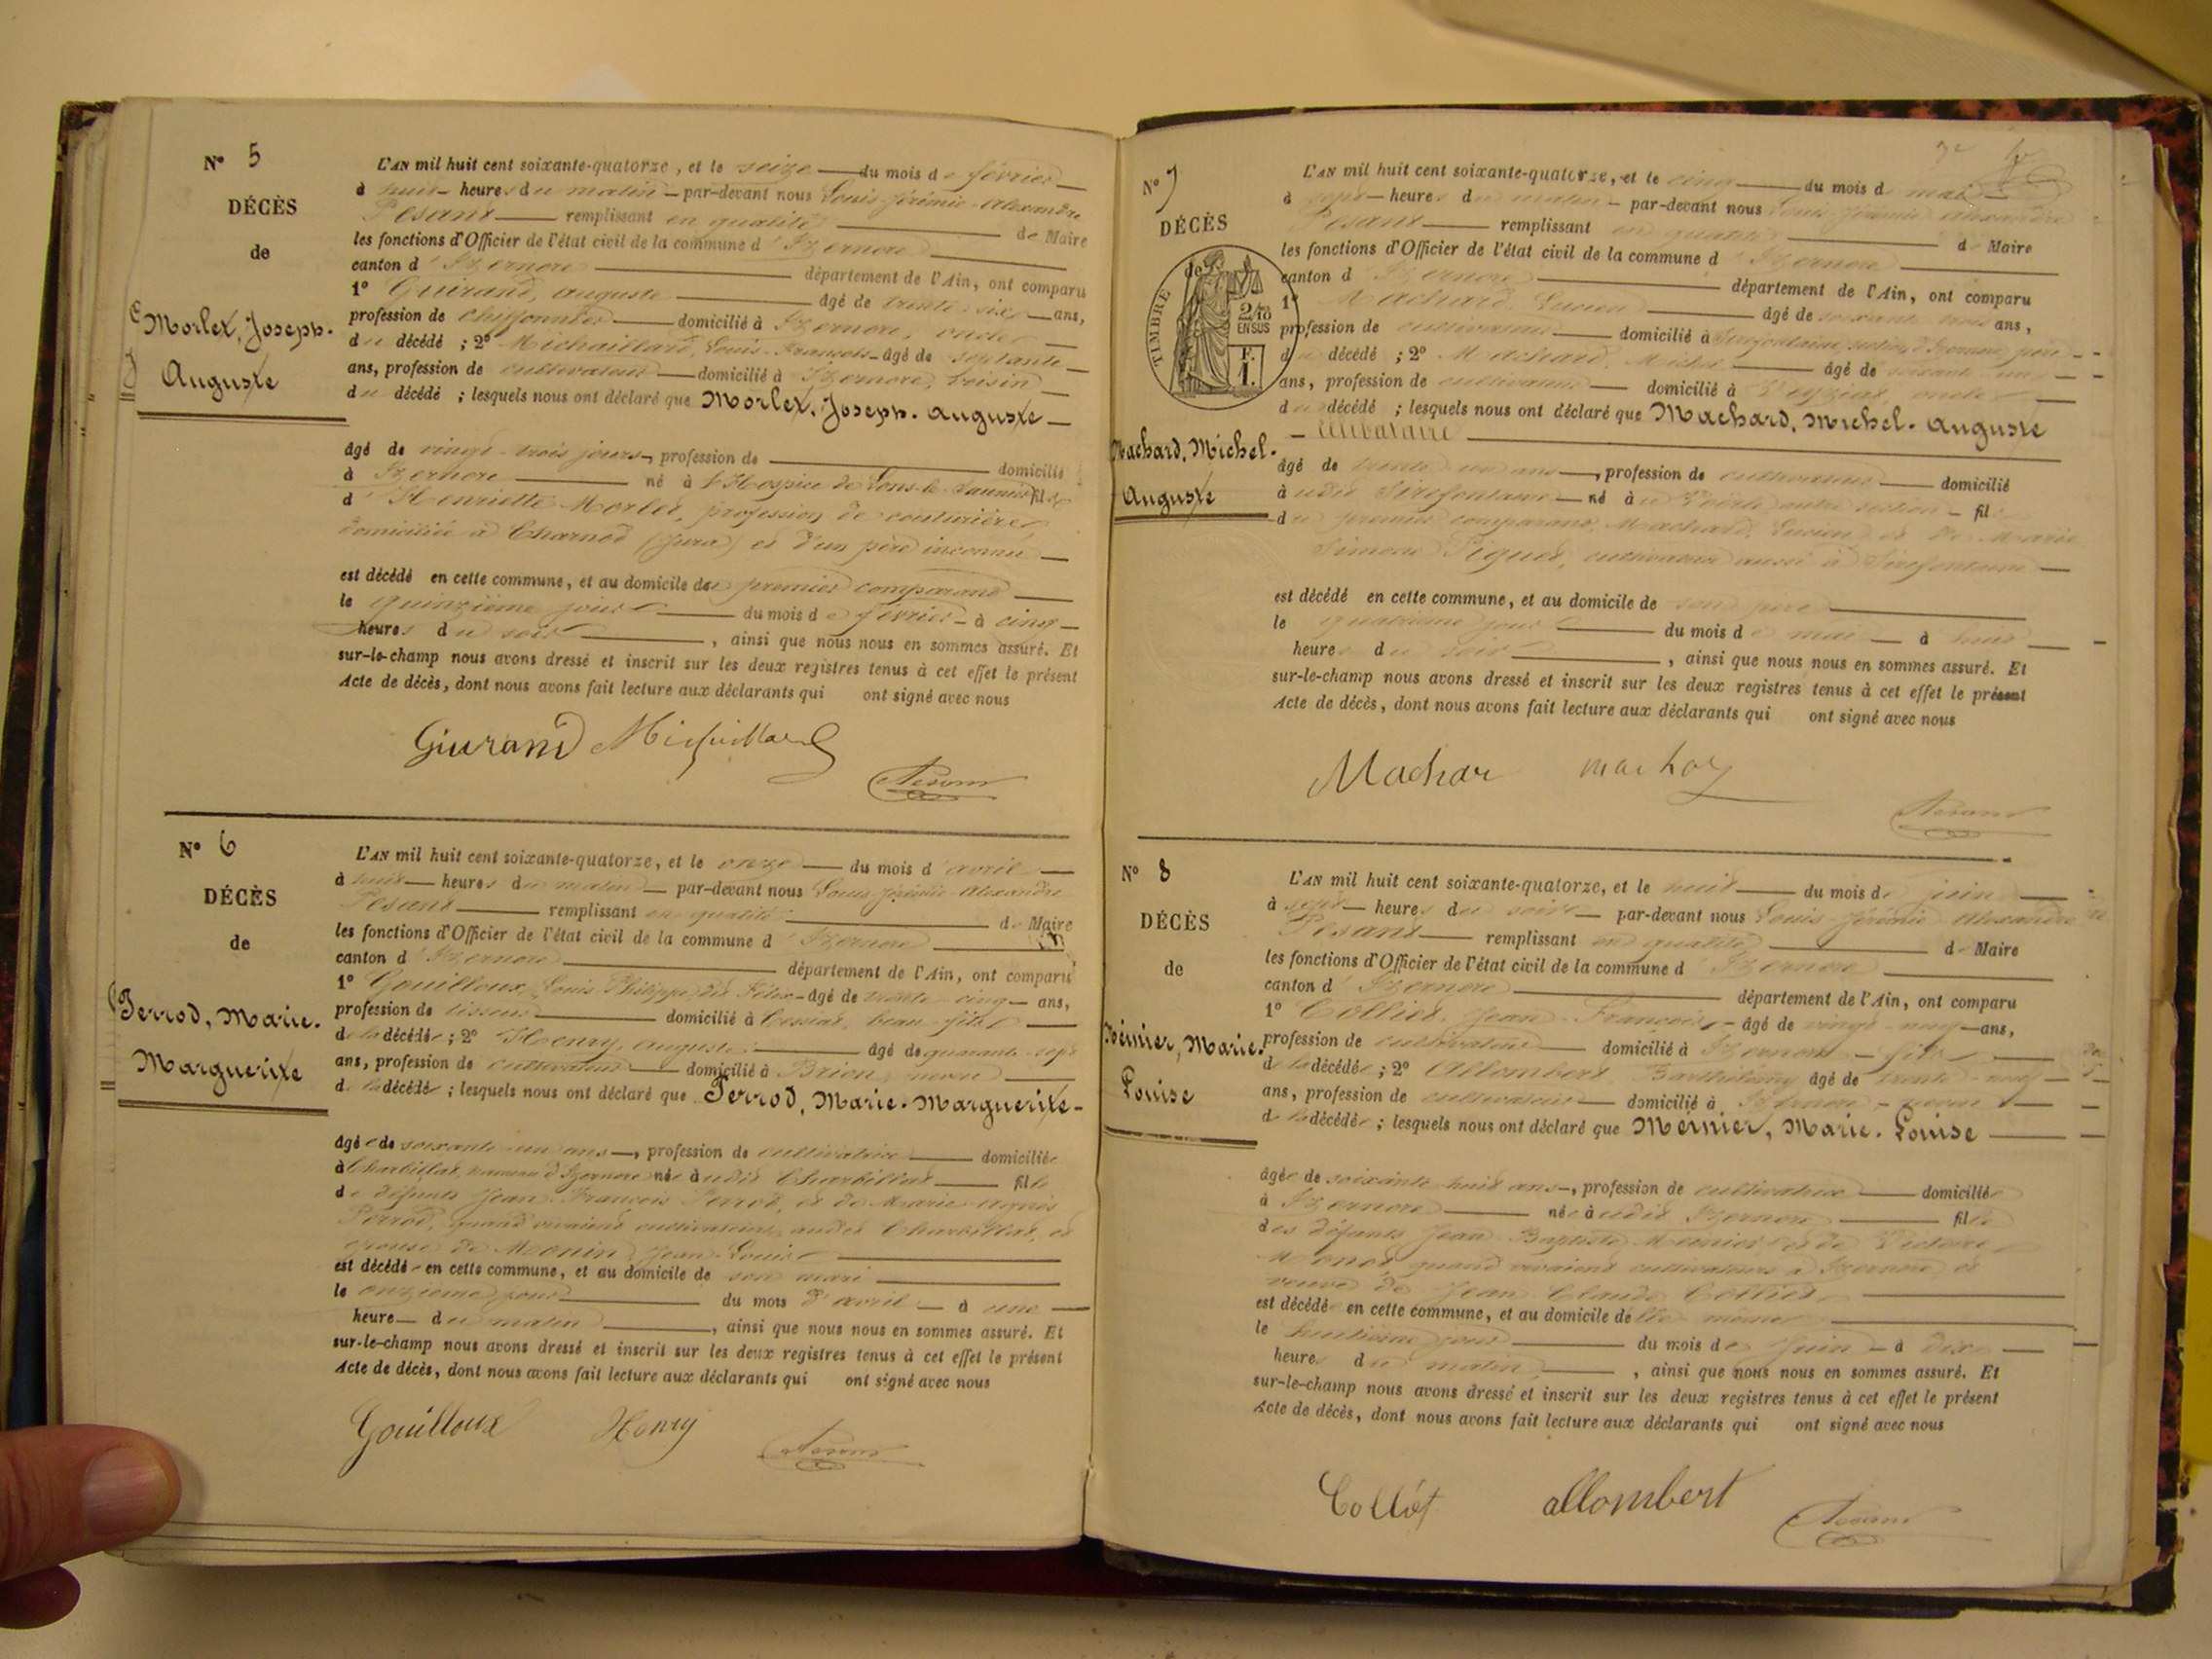 N° 5
DÉCÈS
de
Morlet, Joseph-
Auguste
L'AN mil huit cent soixante-quatorze, et le seize du mois de février
à huit heures du matin par-devant nous Louis-Jérémie-Alexandre
Pesant remplissant en qualité de Maire
les fonctions d'Officier de l'état civil de la commune d'Izernore
canton d'Izernore département de l'Ain, ont comparu
1° Guirand, Auguste âgé de trente-six ans,
profession de chiffonnier domicilié à Izernore, oncle
du décédé ; 2° Michaillard, Louis-François âgé de septante
ans, profession de cultivateur domicilié à Izernore, voisin
du décédé ; lesquels nous ont déclaré que Morlet, Joseph-Auguste
âgé de vingt-trois jours, profession de domicilié
à Izernore né à l'Hospice de Lons-le-Saunier fils
d'Henriette Morlet, profession de couturière,
domiciliée à Charnod (Jura) et d'un père inconnu
est décédé en cette commune, et au domicile du premier comparant
le quinzième jour du mois de février à cinq
heures du soir, ainsi que nous nous en sommes assuré. Et
sur-le-champ nous avons dressé et inscrit sur les deux registres tenus à cet effet le présent
Acte de décès, dont nous avons fait lecture aux déclarants qui ont signé avec nous
Guirand Michaillard
Pesant
N° 6
DÉCÈS
de
Perrod, Marie-
Marguerite
L'AN mil huit cent soixante-quatorze, et le onze du mois d'avril
à huit heures du matin par-devant nous Louis-Jérémie-Alexandre
Pesant remplissant en qualité de Maire
les fonctions d'Officier de l'état civil de la commune d'Izernore
canton d'Izernore département de l'Ain, ont comparu
1° Gouilloux, Louis Philippe dit Félix âgé de trente-cinq ans,
profession de tisseur domicilié à Cessiat, beau-fils
de la décédée ; 2° Henry, Auguste âgé de quarante-sept
ans, profession de cultivateur domicilié à Brion, neveu
de la décédée ; lesquels nous ont déclaré que Perrod, Marie-Marguerite
âgée de soixante-un ans, profession de cultivatrice domiciliée
à Charbillat, hameau d'Izernore née à udit Charbillat fille
de défunts Jean-François Perrod, et de Marie
Perrod, quand vivaient cultivateurs audit Charbillat, et
épouse de Monin Jean-Louis
est décédée en cette commune, et au domicile de son mari
le onzième jour du mois d'avril à une
heure du matin, ainsi que nous nous en sommes assuré. Et
sur-le-champ nous avons dressé et inscrit sur les deux registres tenus à cet effet le présent
Acte de décès, dont nous avons fait lecture aux déclarants qui ont signé avec nous
Gouilloux Henry Pesant
N° 7
DÉCÈS
de
TIMBRE
2/10
EN SUS
F.
1.
Machard, Michel-
Auguste
L'AN mil huit cent soixante-quatorze, et le cinq du mois de mai
à sept heures du matin par-devant nous Louis-Jérémie-Alexandre
Pesant remplissant en qualité de Maire
les fonctions d'Officier de l'état civil de la commune d'Izernore
canton d'Izernore département de l'Ain, ont comparu
1° Machard, Lucien âgé de soixante-trois ans,
profession de cultivateur domicilié à Sirefontaine, section d'Izernore, père
du décédé ; 2° Machard, Michel âgé de soixante-un
ans, profession de cultivateur domicilié à Veyziat, oncle
du décédé ; lesquels nous ont déclaré que Machard, Michel-Auguste
célibataire
âgé de trente-un ans, profession de cultivateur domicilié
à udit Sirefontaine né à u Voërle autre section fils
du premier comparant Machard, Lucien et de Marie
Simone Piquet, cultivateur aussi à Sirefontaine
est décédé en cette commune, et au domicile de son père
le quatrième jour du mois de mai à huit
heures du soir, ainsi que nous nous en sommes assuré. Et
sur-le-champ nous avons dressé et inscrit sur les deux registres tenus à cet effet le présent
Acte de décès, dont nous avons fait lecture aux déclarants qui ont signé avec nous
Machar
Pesant
N° 8
DÉCÈS
de
Meinier, Marie-
Louise
L'AN mil huit cent soixante-quatorze, et le huit du mois de juin
à sept heures du soir par-devant nous Louis-Jérémie-Alexandre
Pesant remplissant en qualité de Maire
les fonctions d'Officier de l'état civil de la commune d'Izernore
canton d'Izernore département de l'Ain, ont comparu
1° Collet, Jean-François âgé de vingt-neuf ans,
profession de cultivateur domicilié à Izernore fils
de la décédée ; 2° Allombert Barthélemy âgé de trente-neuf
ans, profession de cultivateur domicilié à Izernore neveu
de la décédée ; lesquels nous ont déclaré que Meinier, Marie-Louise
âgée de soixante-huit ans, profession de cultivatrice domiciliée
à Izernore née à udit Izernore fille
des défunts Jean-Baptiste Meinier et de Victoire
quand vivaient cultivateurs à Izernore, et
veuve de Jean Claude Collet
est décédée en cette commune, et au domicile d'elle-même
le huitième jour du mois de juin à dix
heures du matin, ainsi que nous nous en sommes assuré. Et
sur-le-champ nous avons dressé et inscrit sur les deux registres tenus à cet effet le présent
Acte de décès, dont nous avons fait lecture aux déclarants qui ont signé avec nous
Collet allombert Pesant